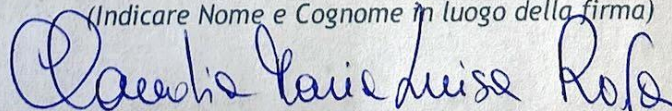 (Indicare Nome e Cognome in luogo della firma)
Claudia Maria Luisa Rosa